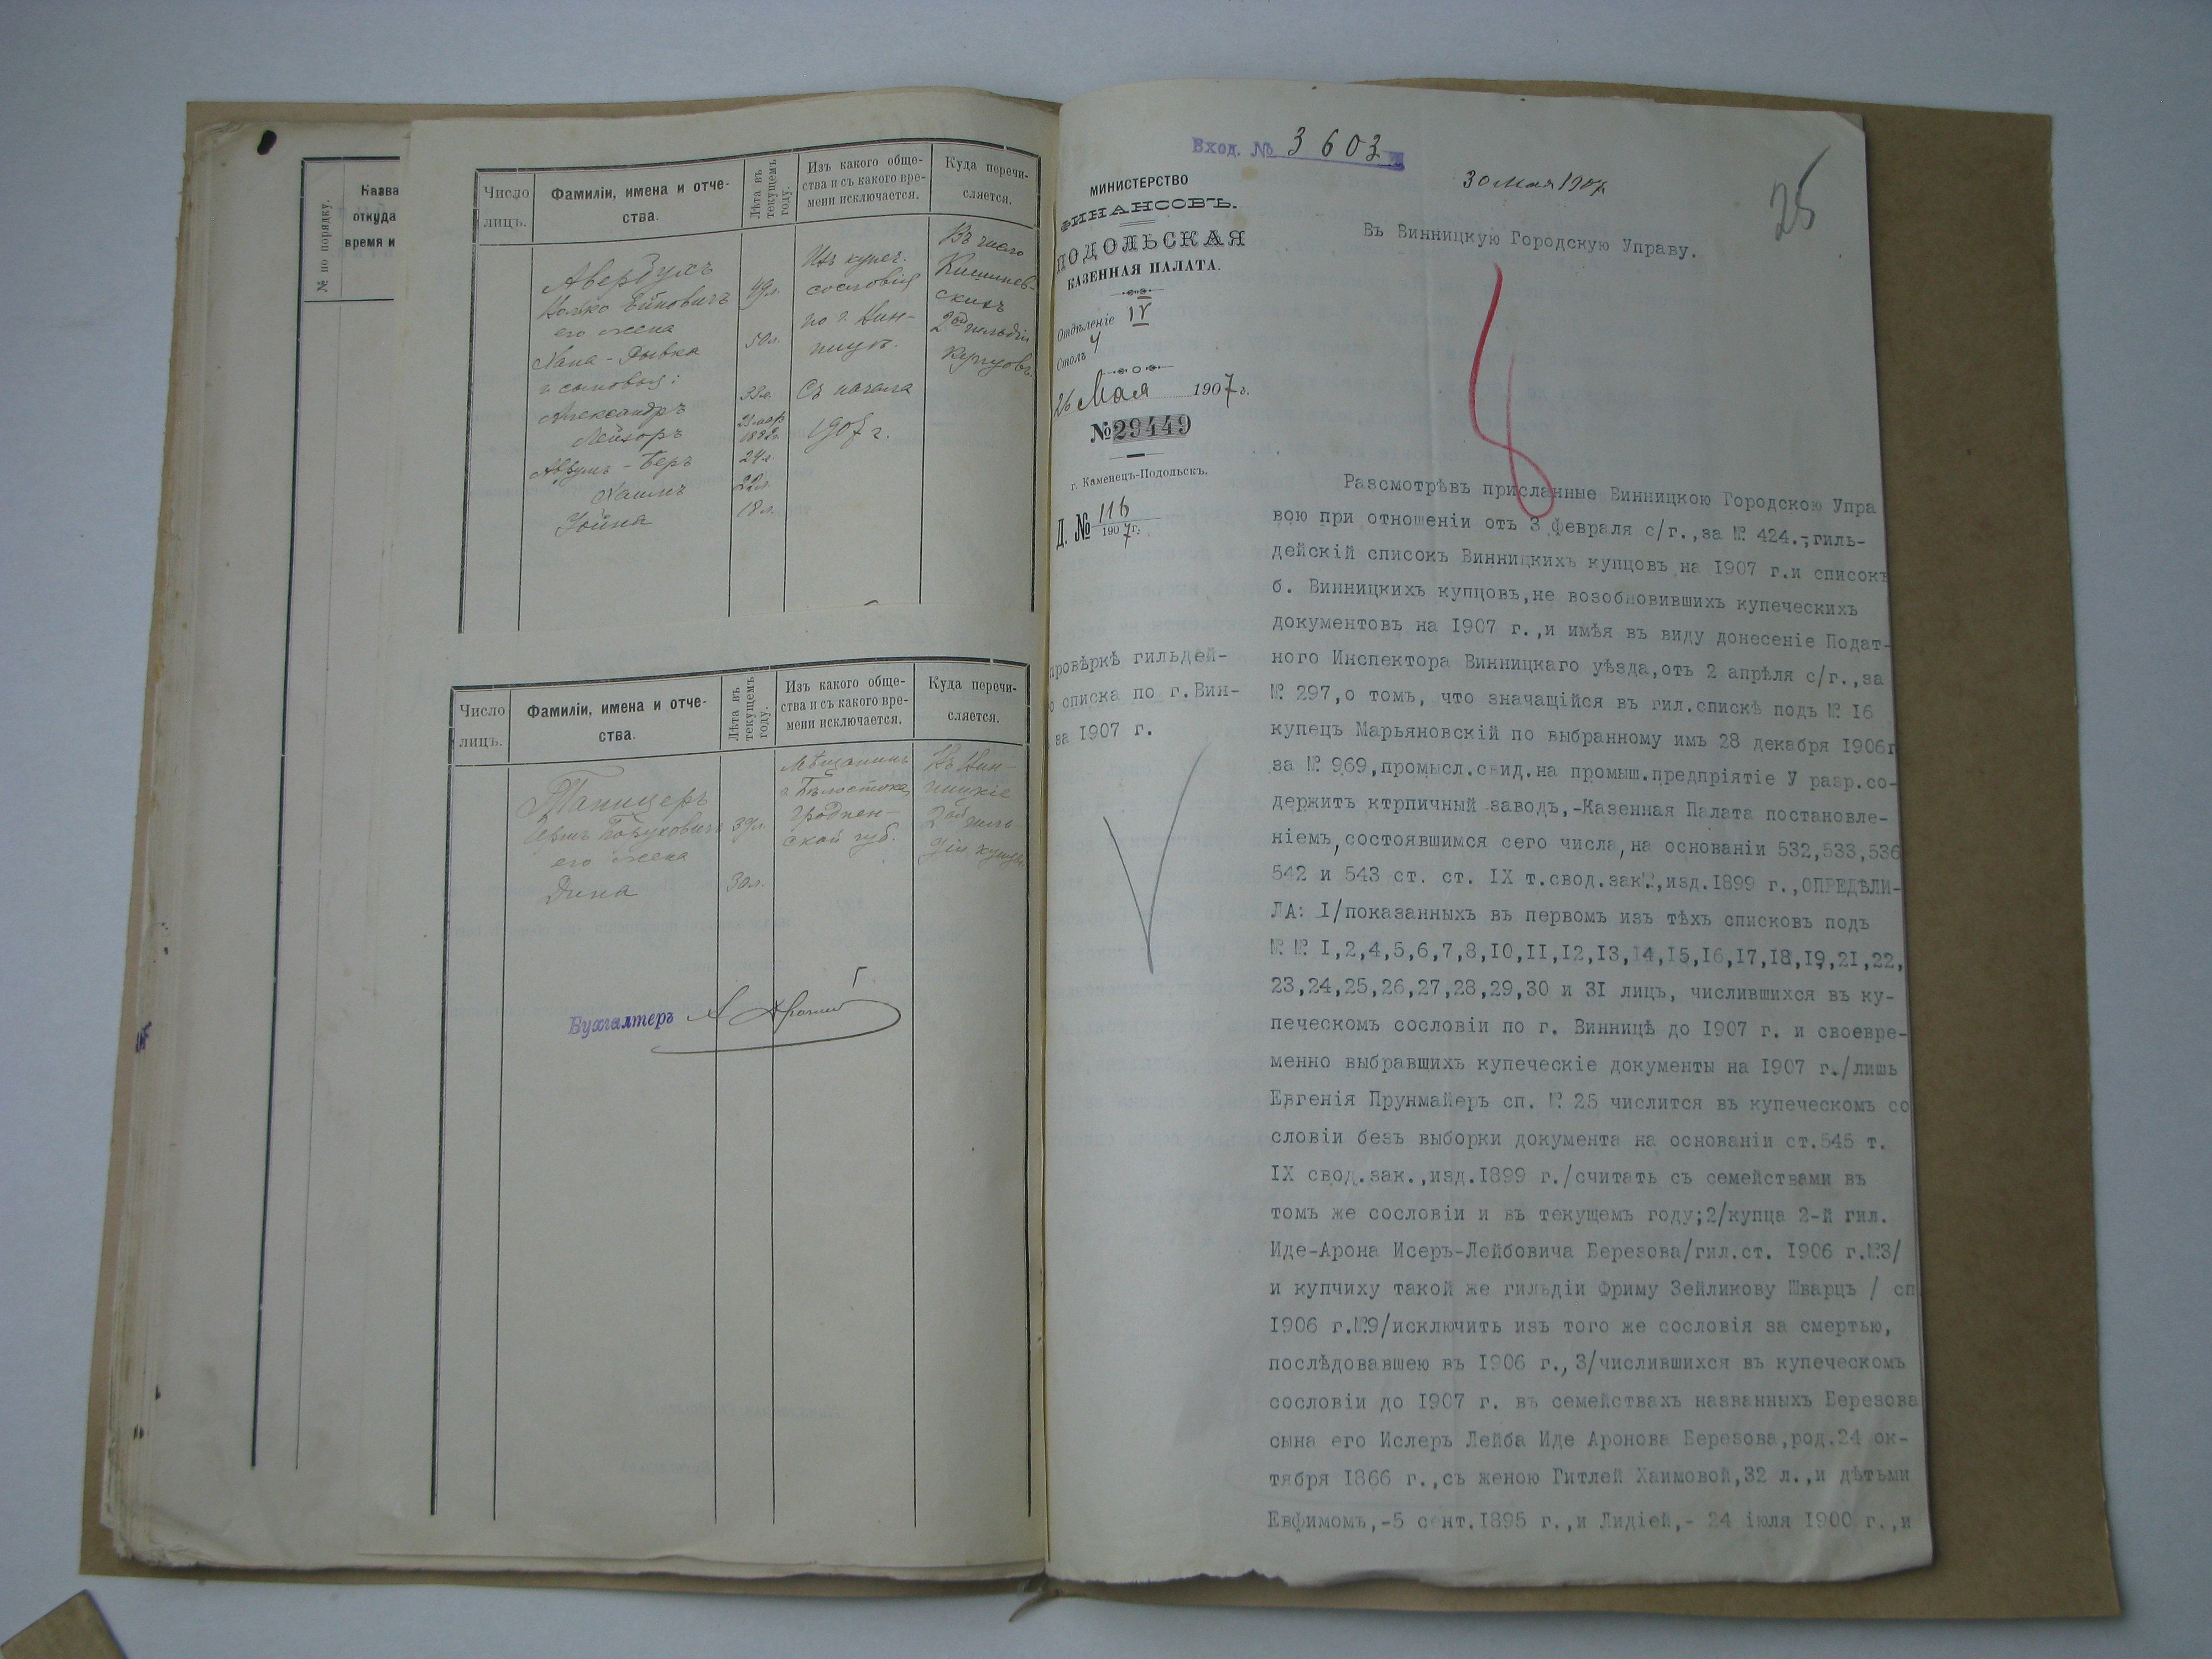 № по порядку.
Назва
откуда
время и
Число
лицъ.
Фамиліи, имена и отче-
ства.
Лѣта въ
текущемъ
году.
Изъ какого обще-
ства и съ какого вре-
мени исключается.
Куда перечи-
сляется.
Авербухъ
его жена
Хана-Рывка
и сыновья:
Александръ
Лейзоръ
Аврумъ-Беръ
Хаимъ
49 л.
50 л.
33 л.
1882 г.
24 л.
22 л.
18 л.
Изъ купеч.
сословія
по г. Вин-
ницѣ.
Съ начала
1907 г.
Въ число
Кишинев-
скихъ
2ой гильдіи
купцовъ.
Число
лицъ.
Фамиліи, имена и отче-
ства.
Лѣта въ
текущемъ
году.
Изъ какого обще-
ства и съ какого вре-
мени исключается.
Куда перечи-
сляется.
Боруховичъ
его жена
Дина
39 л.
30 л.
Мѣщанинъ
г. Бѣлостока,
Гроднен-
ской губ.
Въ Вин-
ницкіе
2ой гиль-
діи купцы
Бухгалтеръ
Вход. № 3603
МИНИСТЕРСТВО
ФИНАНСОВЪ.
ПОДОЛЬСКАЯ
КАЗЕННАЯ ПАЛАТА.
Отдѣленіе IV
Столъ 4
26 Мая 1907 г.
№ 29449
г. Каменецъ-Подольскъ.
Д. № 116
1907 г.
провѣркѣ гильдей-
о списка по г.Вин-
за 1907 г.
30 мая 1907
25
Въ Винницкую Городскую Управу.
Разсмотрѣвъ присланные Винницкою Городскою Упра
вою при отношеніи отъ 3 февраля с/г.,за № 424.-,гиль-
дейскій списокъ Винницкихъ купцовъ на 1907 г.и списокъ
б. Винницкихъ купцовъ,не возобновившихъ купеческихъ
документовъ на 1907 г.,и имѣя въ виду донесеніе Подат-
ного Инспектора Винницкаго уѣзда,отъ 2 апрѣля с/г.,за
№ 297,о томъ, что значащійся въ гил.спискѣ подъ № 16
купецъ Марьяновскій по выбранному имъ 28 декабря 1906г
за № 969,промысл.свид.на промыш.предпріятіе У разр.со-
держитъ ктрпичный заводъ,-Казенная Палата постановле-
ніемъ,состоявшимся сего числа,на основаніи 532,533,536
542 и 543 ст. ст. IX т.свод.зак.,изд.1899 г.,ОПРЕДѢЛИ-
ЛА: I/показанныхъ въ первомъ изъ тѣхъ списковъ подъ
№ № I,2,4,5,6,7,8,IO,II,I2,I3,I4,I5,I6,I7,I8,I9,21,22,
23,24,25,26,27,28,29,30 и 3I лицъ, числившихся въ ку-
печескомъ сословіи по г. Винницѣ до 1907 г. и своевре-
менно выбравшихъ купеческіе документы на 1907 г./лишь
Евгенія Прунмайеръ сп. № 25 числится въ купеческомъ со
словіи безъ выборки документа на основаніи ст.545 т.
IX свод.зак.,изд.1899 г./считать съ семействами въ
томъ же сословіи и въ текущемъ году;2/купца 2-й гил.
Иде-Арона Исеръ-Лейбовича Березова/гил.ст. 1906 г.№3/
и купчиху такой же гильдіи Фриму Зейликову Шварцъ / сп
1906 г.№9/исключить изъ того же сословія за смертью,
послѣдовавшею въ 1906 г., 3/числившихся въ купеческомъ
сословіи до 1907 г. въ семействахъ названныхъ Березова
сына его Ислеръ Лейба Иде Аронова Березова,род.24 ок-
тября 1866 г.,съ женою Гитлей Хаимовой,32 л.,и дѣтьми
Евфимомъ,-5 сент.1895 г.,и Лидіей,- 24 іюля 1900 г.,и